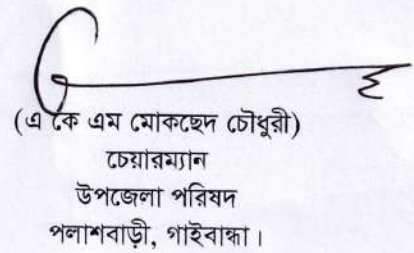 (এ কে এম মোকছেদ চৌধুরী)
চেয়ারম্যান
উপজেলা পরিষদ
পলাশবাড়ী, গাইবান্ধা।